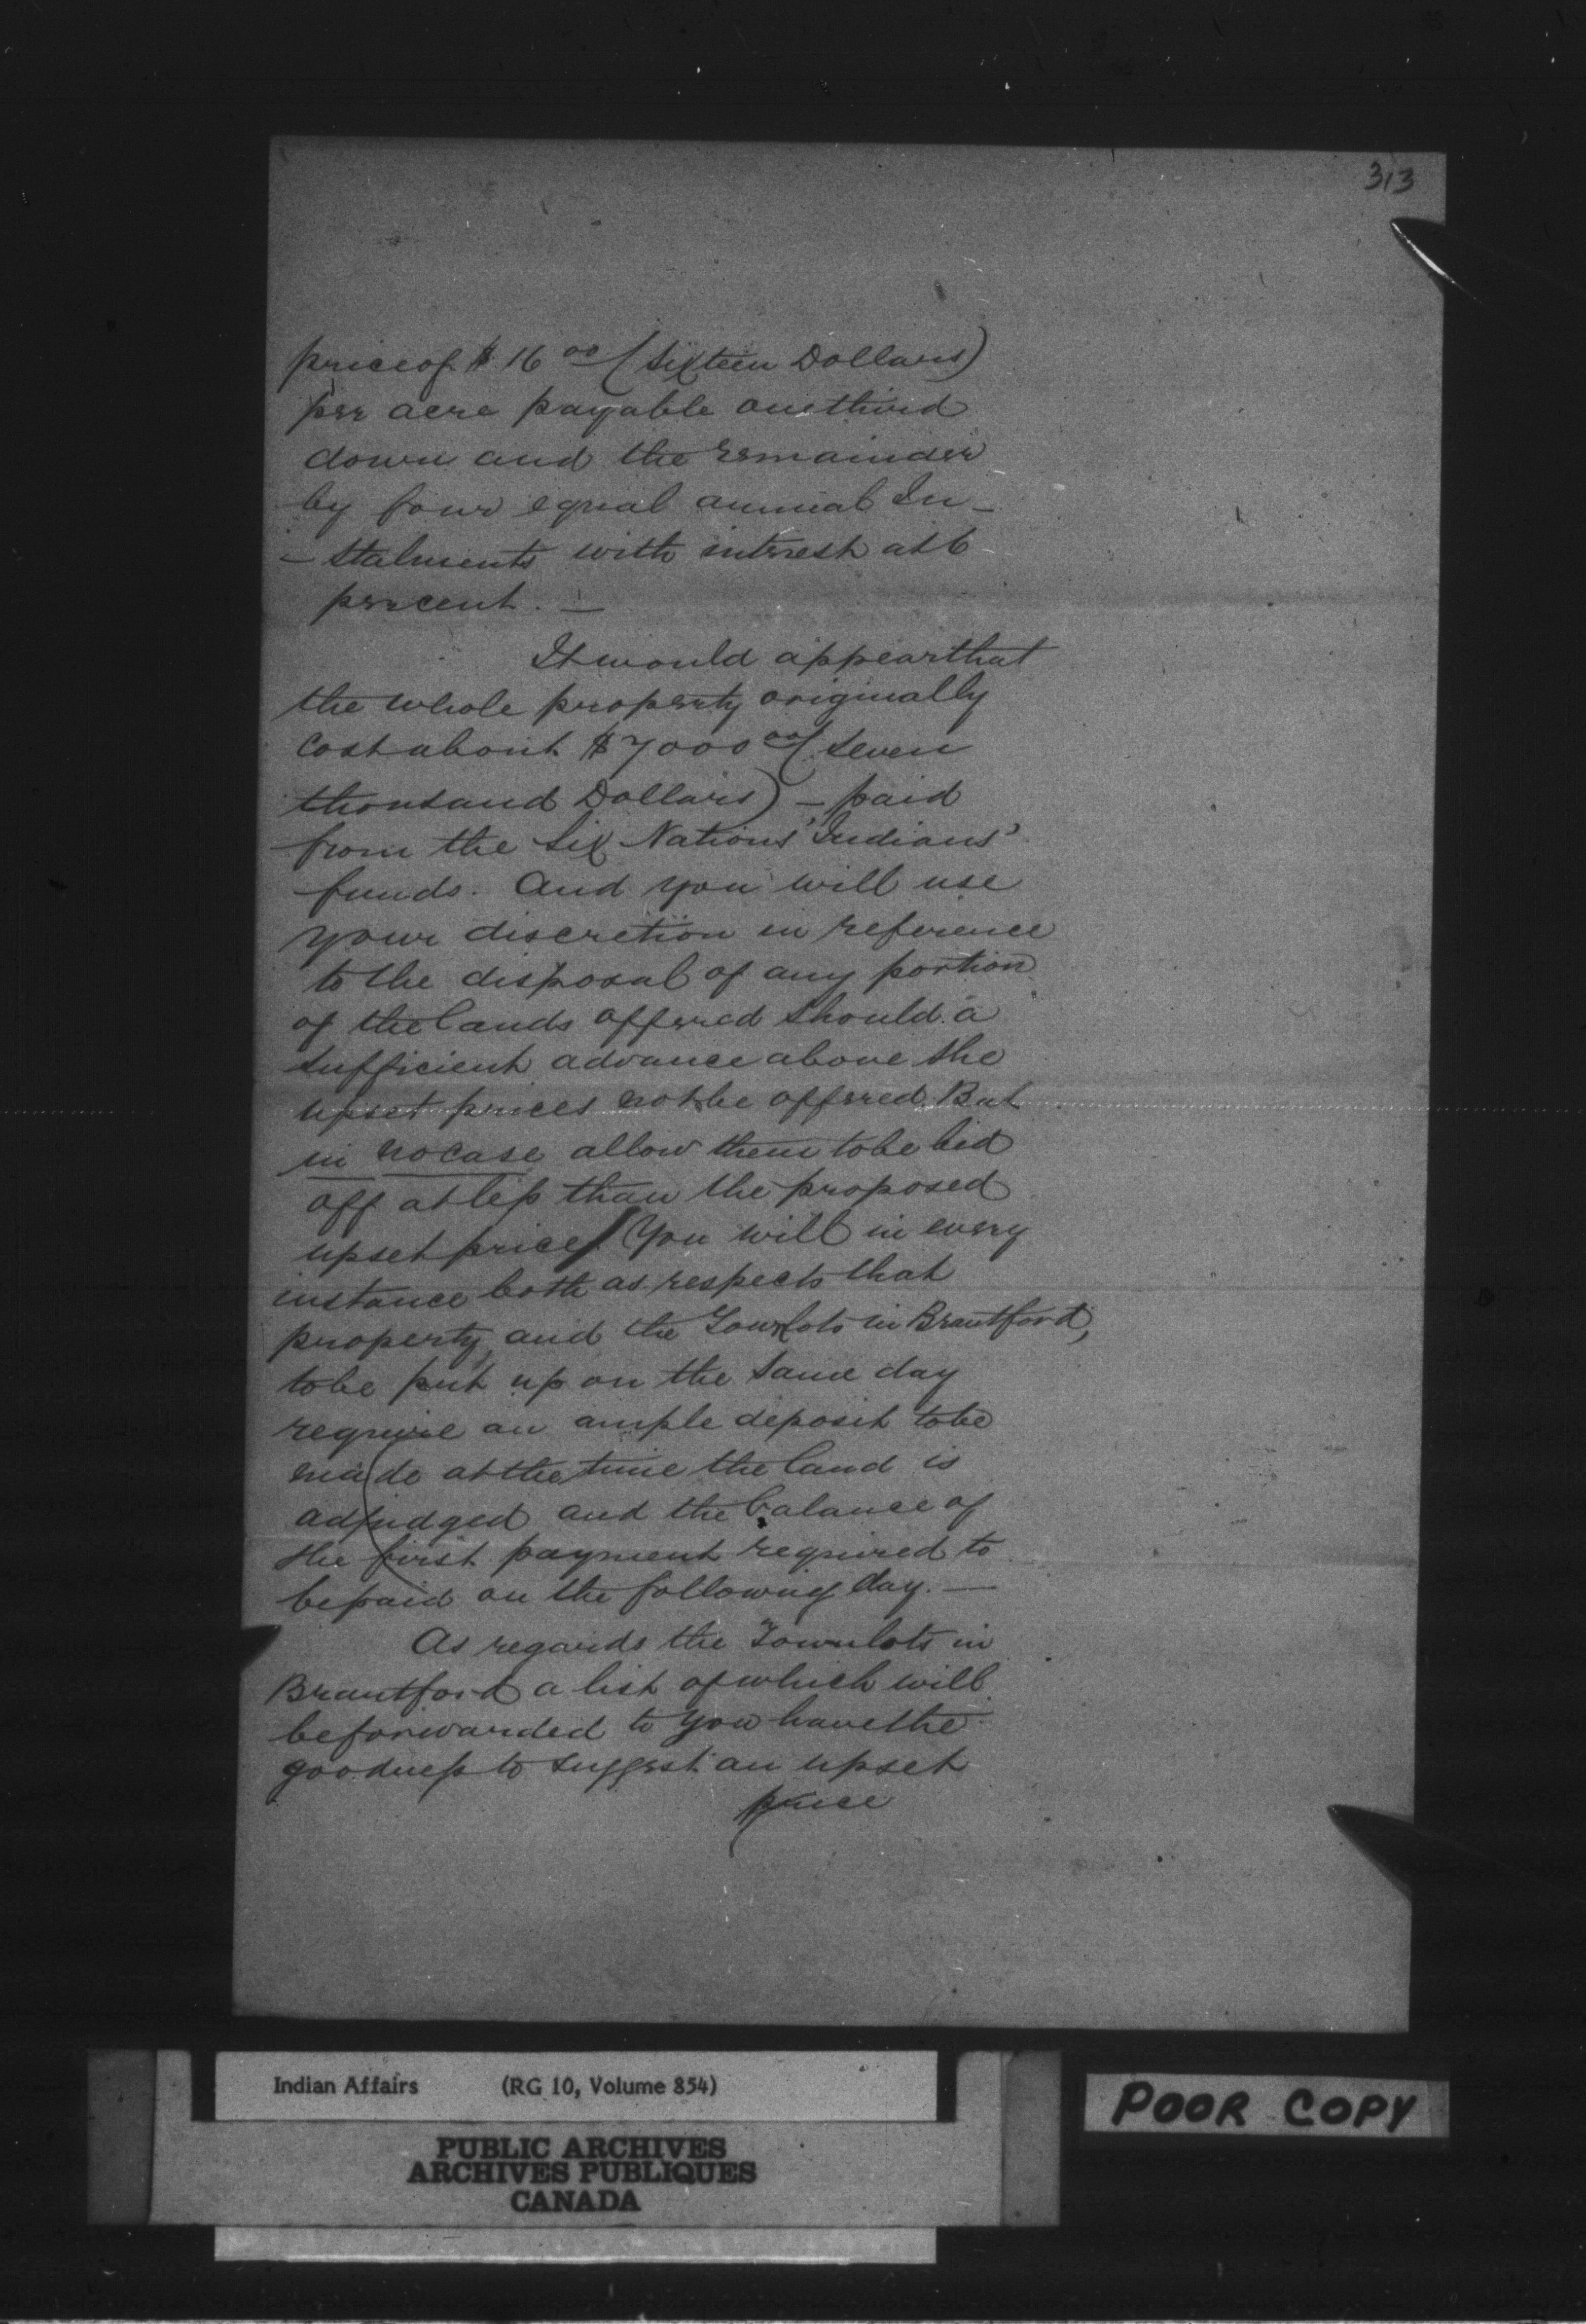 313
price of $16 00/ (Sixteen Dollars)
per acre payable one third
down and the remainder
by four equal annual In-
-stalments with interest at 6
per cent. —
It would appear that
the whole property originally
cost about $7000 00/ (Seven
thousand Dollars) - paid
from the Six Nations' Indians'
funds. And you will use
your discretion in reference
to the disposal of any portion
of the lands offered should a
sufficient advance above the
upset prices not be offered. But
in no case allow them to be bid
off at less than the proposed
upset price. You will in every
instance both as respects that
property, and the Townlots in Brantford,
to be put up on the same day
require an ample deposit to be
made at the time the land is
adjudged and the balance of
the first payment required to
be paid on the following day. —
As regards the Townlots in
Brantford a list of which will
be forwarded to you have the
goodness to suggest an upset
price
Indian Affairs (RG 10, Volume 854)
PUBLIC ARCHIVES
ARCHIVES PUBLIQUES
CANADA
POOR COPY